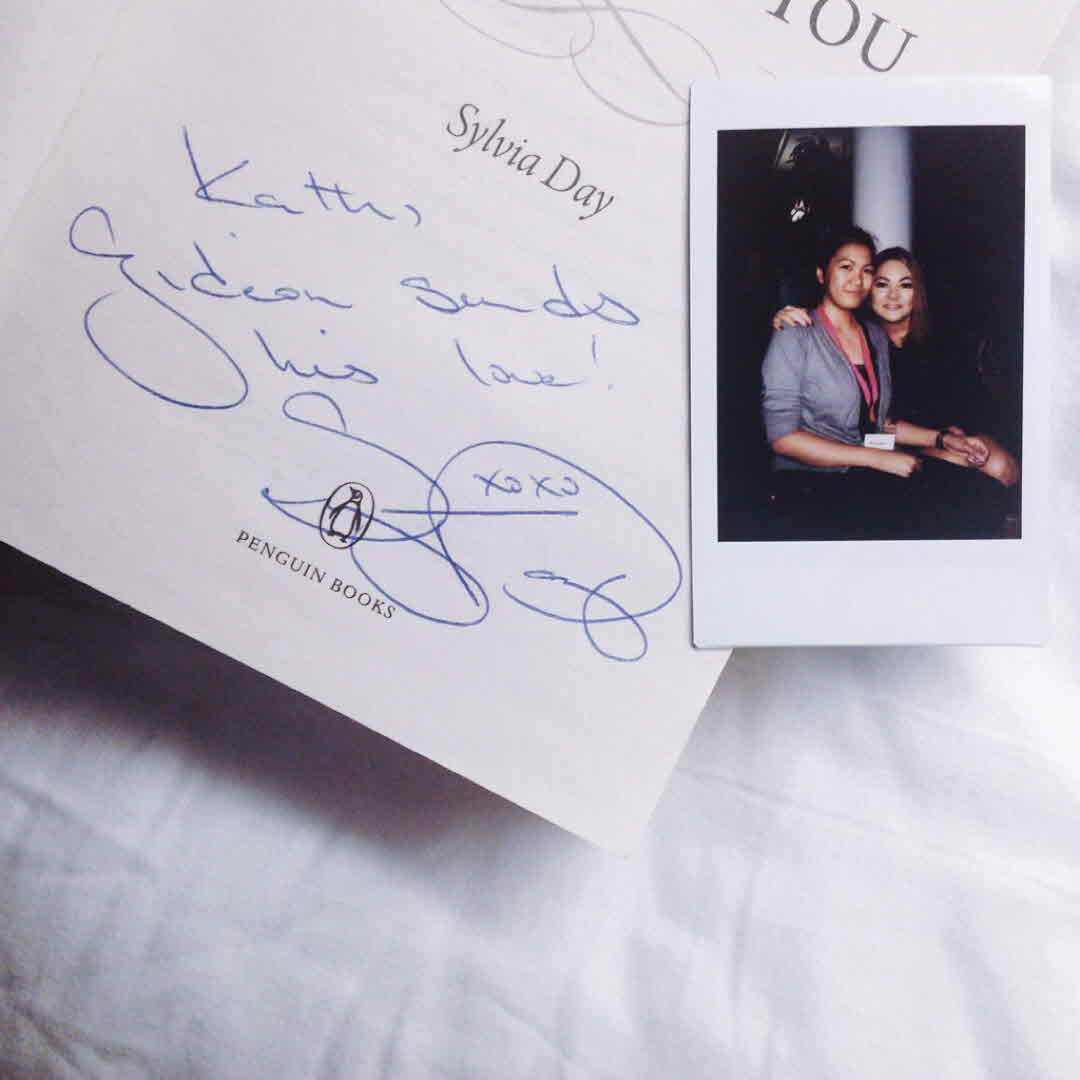 YOU
Sylvia Day
Kathy,
Gideon sends
his love!
xoxo
S Day
PENGUIN BOOKS